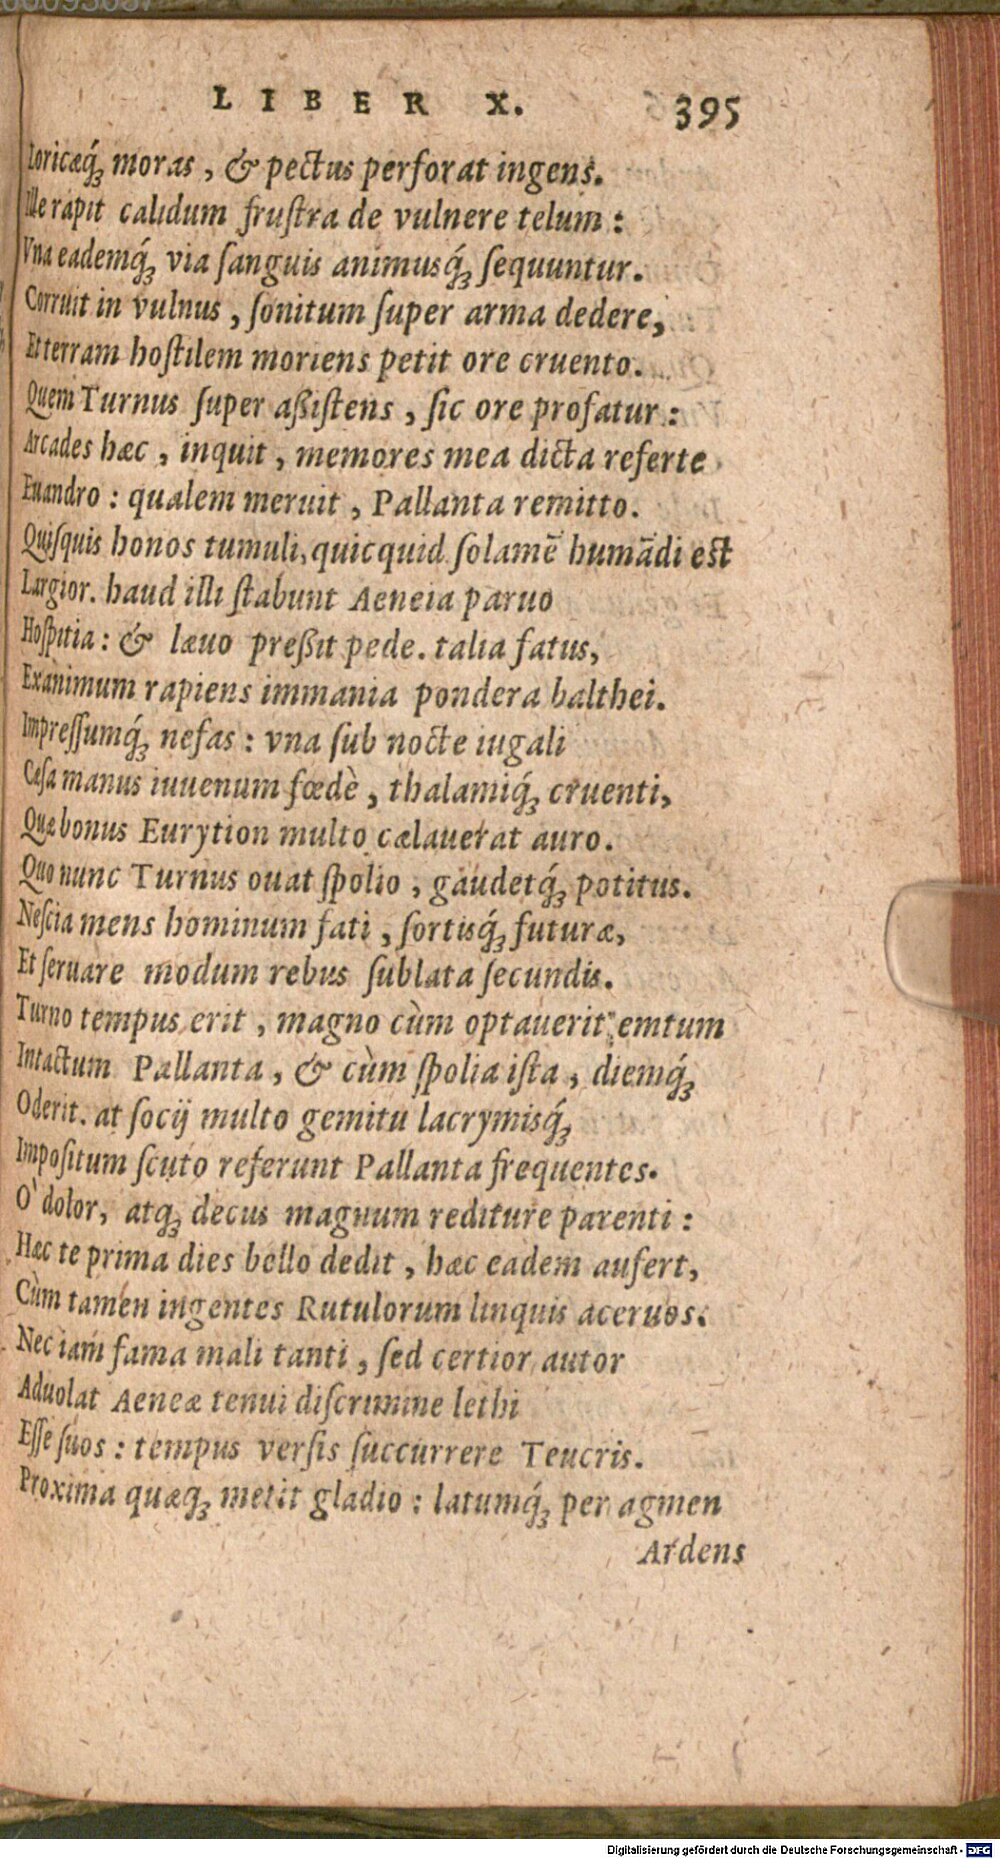 LIBER X. 395
Loricæq́ꝫ moras, & pectus perforat ingens.
Ille rapit calidum fruſtra de vulnere telum:
Vna eademq́ꝫ via ſanguis animusq́ꝫ ſequuntur.
Corruit in vulnus, ſonitum ſuper arma dedere,
Et terram hoſtilem moriens petit ore cruento.
Quem Turnus ſuper aßiſtens, ſic ore profatur:
Arcades hæc, inquit, memores mea dicta referte
Euandro: qualem meruit, Pallanta remitto.
Quiſquis honos tumuli, quicquid ſolamē humādi est
Largior. haud illi ſtabunt Aeneia paruo
Hoſpitia: & læuo preßit pede. talia fatus,
Exanimum rapiens immania pondera balthei.
Impreſſumq́ꝫ nefas: vna ſub nocte iugali
Cæſa manus iuuenum fœdè, thalamiq́ꝫ cruenti,
Quæ bonus Eurytion multo cælauerat auro.
Quo nunc Turnus ouat ſpolio, gaudetq́ꝫ potitus.
Neſcia mens hominum fati, ſortisq́ꝫ futuræ,
Et ſeruare modum rebus ſublata ſecundis.
Turno tempus erit, magno cùm optauerit emtum
Intactum Pallanta, & cùm ſpolia iſta, diemq́ꝫ
Oderit. at ſocij multo gemitu lacrymisq́ꝫ
Impoſitum ſcuto referunt Pallanta frequentes.
O' dolor, atqꝫ decus magnum rediture parenti:
Hæc te prima dies bello dedit, hæc eadem aufert,
Cùm tamen ingentes Rutulorum linquis aceruos.
Nec iam fama mali tanti, ſed certior autor
Aduolat Aeneæ tenui diſcrimine lethi
Eſſe ſuos: tempus verſis ſuccurrere Teucris.
Proxima quæqꝫ metit gladio: latumq́ꝫ per agmen
Ardens
Digitalisierung gefördert durch die Deutsche Forschungsgemeinschaft - DFG